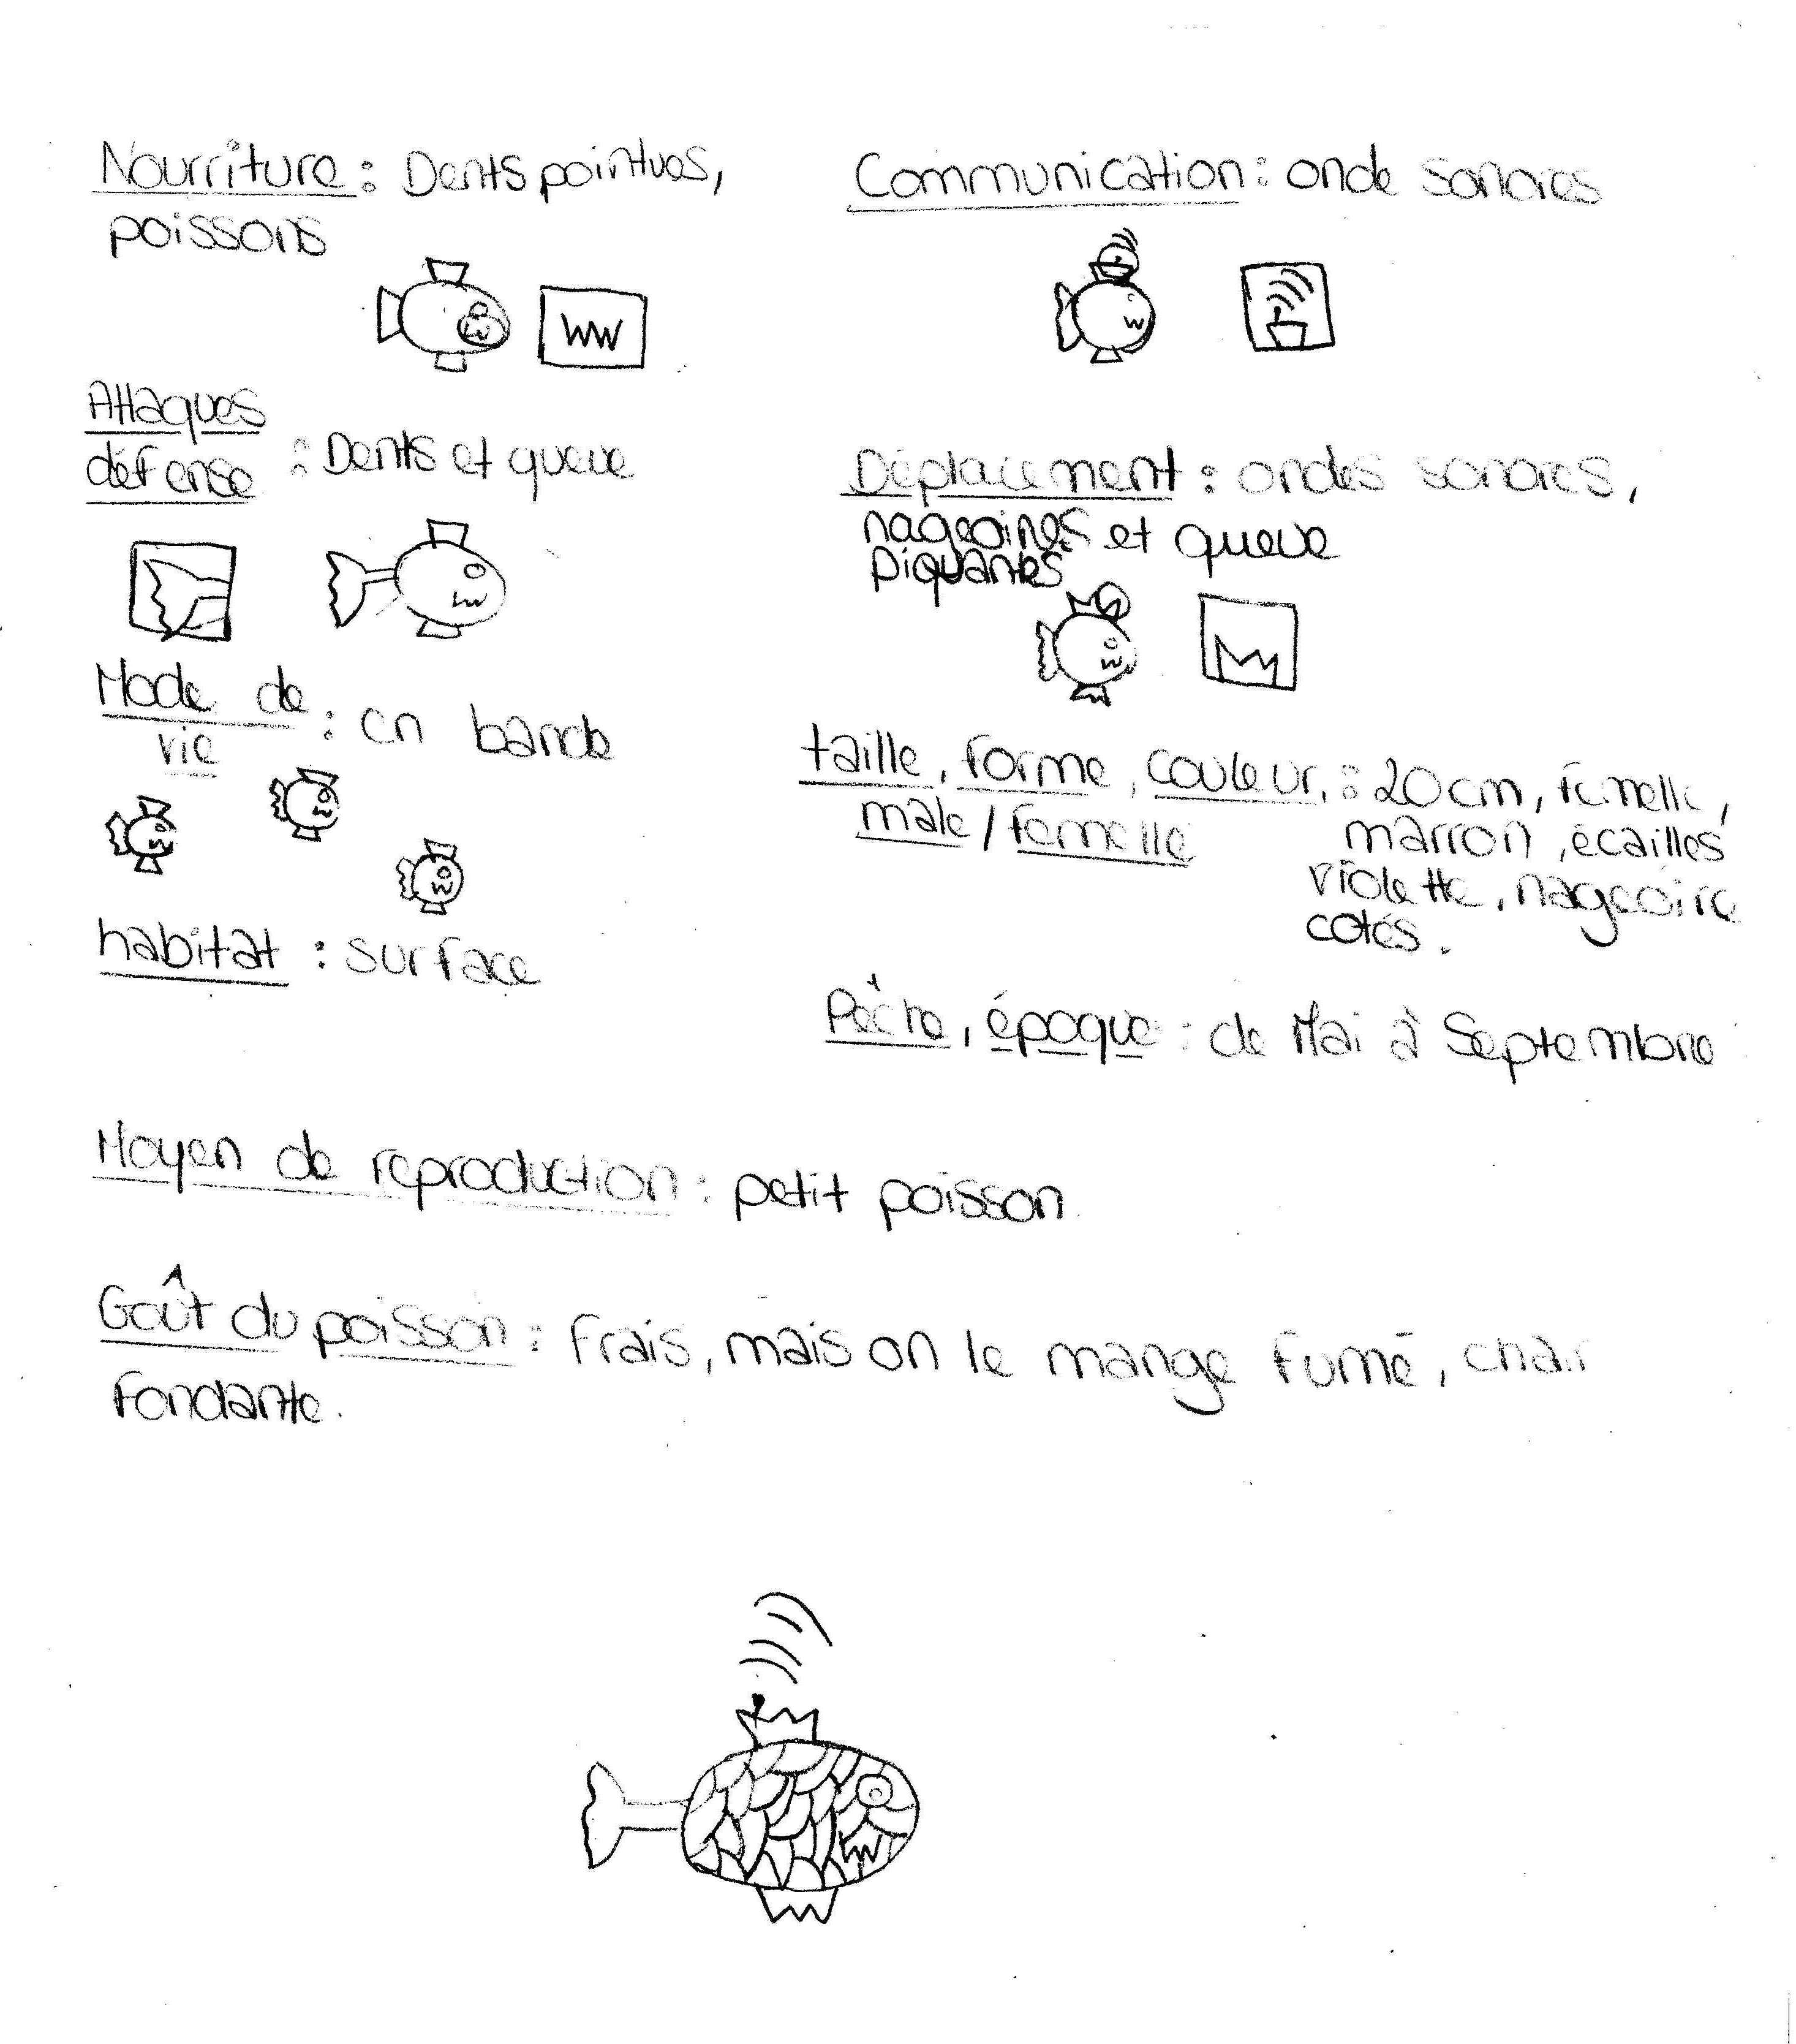 Nourriture : Dents pointues,
poissons
Attaques
défense : Dents et queue
Mode de
vie : en bande
habitat : surface
Communication : onde sonores
Déplacement : ondes sonores,
nageoires et queue
piquantes
taille, forme, couleur, : 20 cm, femelle,
male / femelle marron, écailles
violette, nageoire
cotés.
Pêche, époque : de Mai à Septembre
Moyen de reproduction : petit poisson
Goût du poisson : Frais, mais on le mange fumé, chair
fondante.